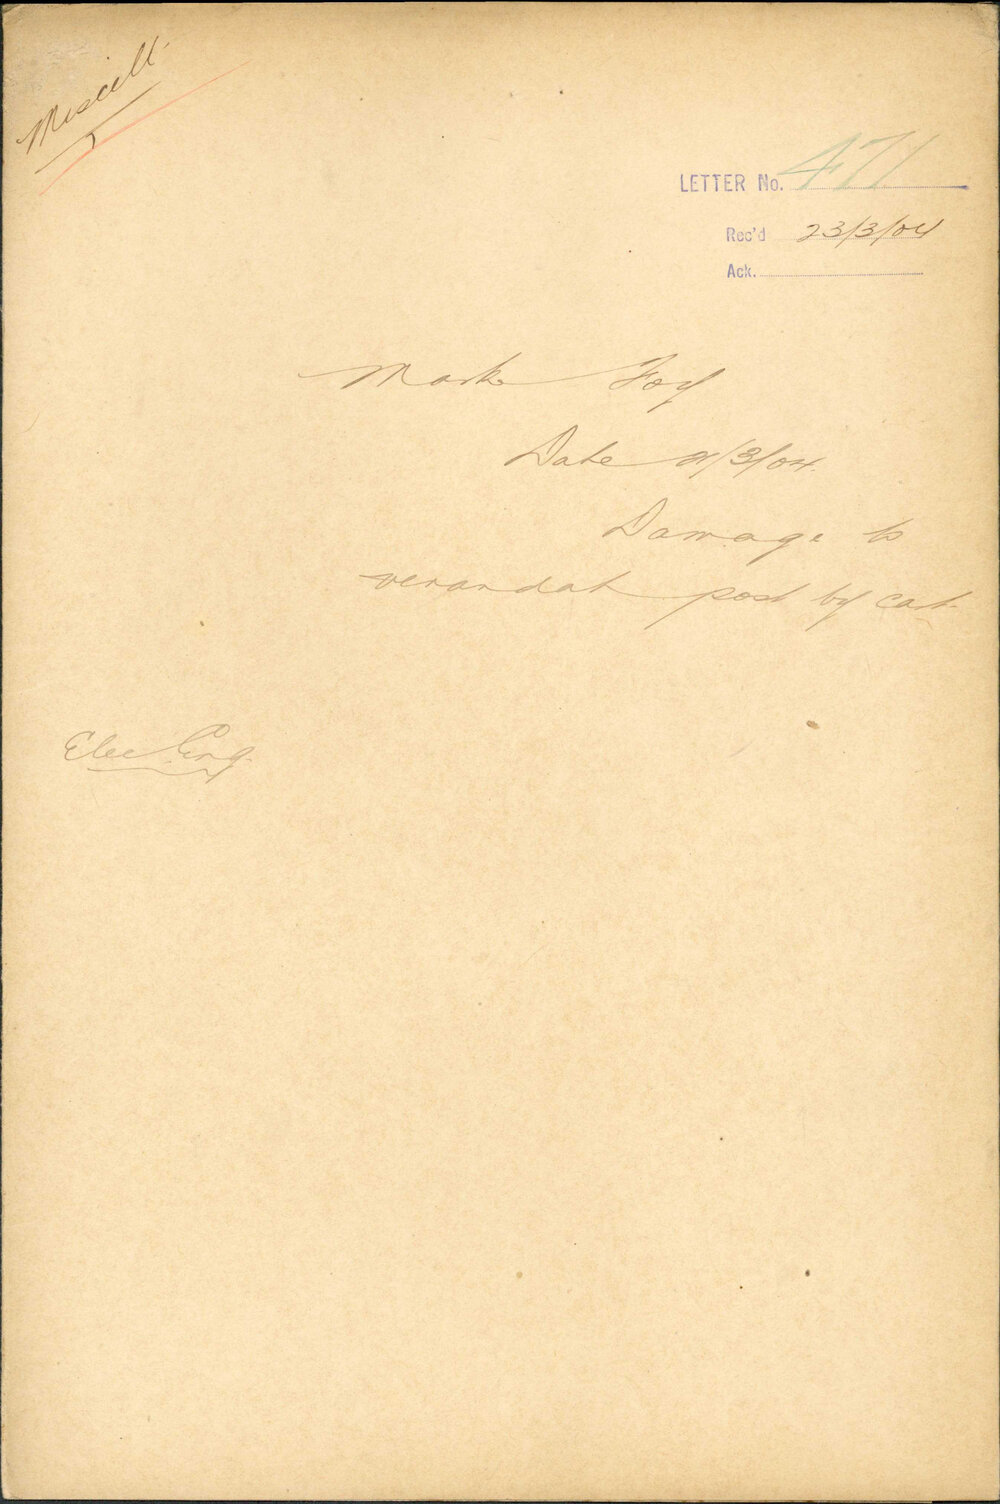 Miscell
LETTER No. 471
Rec'd 23/3/04
Ack.
Mark Foy
Date 21/3/04.
Damage to
verandah post by cart
Elec Eng.